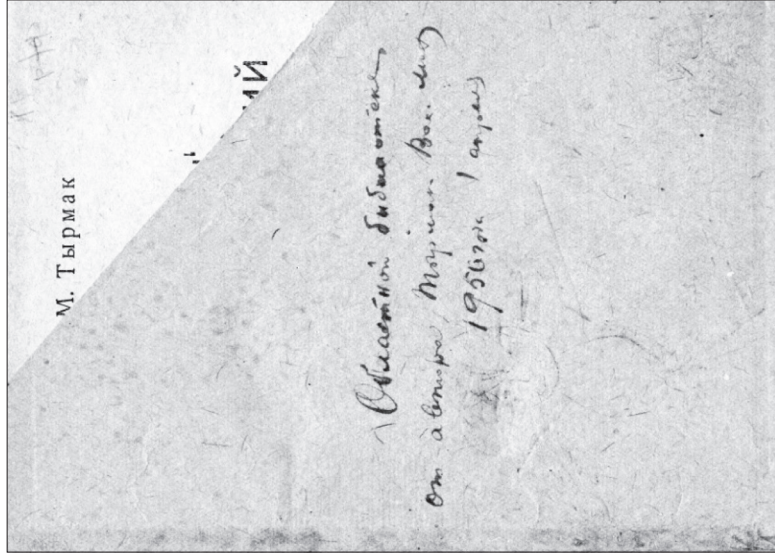 М. Тырмак
ИЙ
Областной библиотеке
от автора Тырмак
1956 год 1 апреля